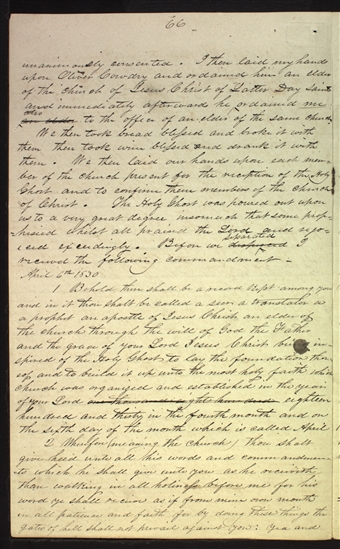 66
unanimously consented. I then laid my hands
upon Oliver Cowdry and ordained him an elder
of the church of Jesus Christ of Latter Day Saints
and immediately afterward he ordained me
also
an elder to the office of an elder of the same church
We then took bread blessed and broke it with
them then took wine blessed and drank it with
them. We then laid our hands upon each mem-
ber of the church present for the reception of the Holy
Ghost and to confirm them members of the church
of Christ. The Holy Ghost was poured out upon
us to a very great degree insomuch that some prop-
hesied whilst all praised the Lord and rejo-
separated
iced exceedingly. Before we dispersed I
received the following commandment.
April 6th 1830
1 Behold there shall be a record kept among you
and in it thou shalt be called a seer a translator a
a prophet an apostle of Jesus Christ an elder of
the church through the will of God the Father
and the grace of your Lord Jesus Christ being in-
spired of the Holy Ghost to lay the foundation there
of and to build it up unto the most holy faith which
church was organized and established in the year
of your Lord one thousand eight hundred eighteen
hundred and thirty in the fourth month and on
the sixth day of the month which is called April
2 Wherefore (meaning the church) thou shalt
give heed unto all his words and commandmen-
ts which he shall give unto you as he receiveth
them walking in all holiness before me for his
word ye shall receive as if from mine own mouth
in all patience and faith for by doing these things the
gates of hell shall not prevail against you: Yea and